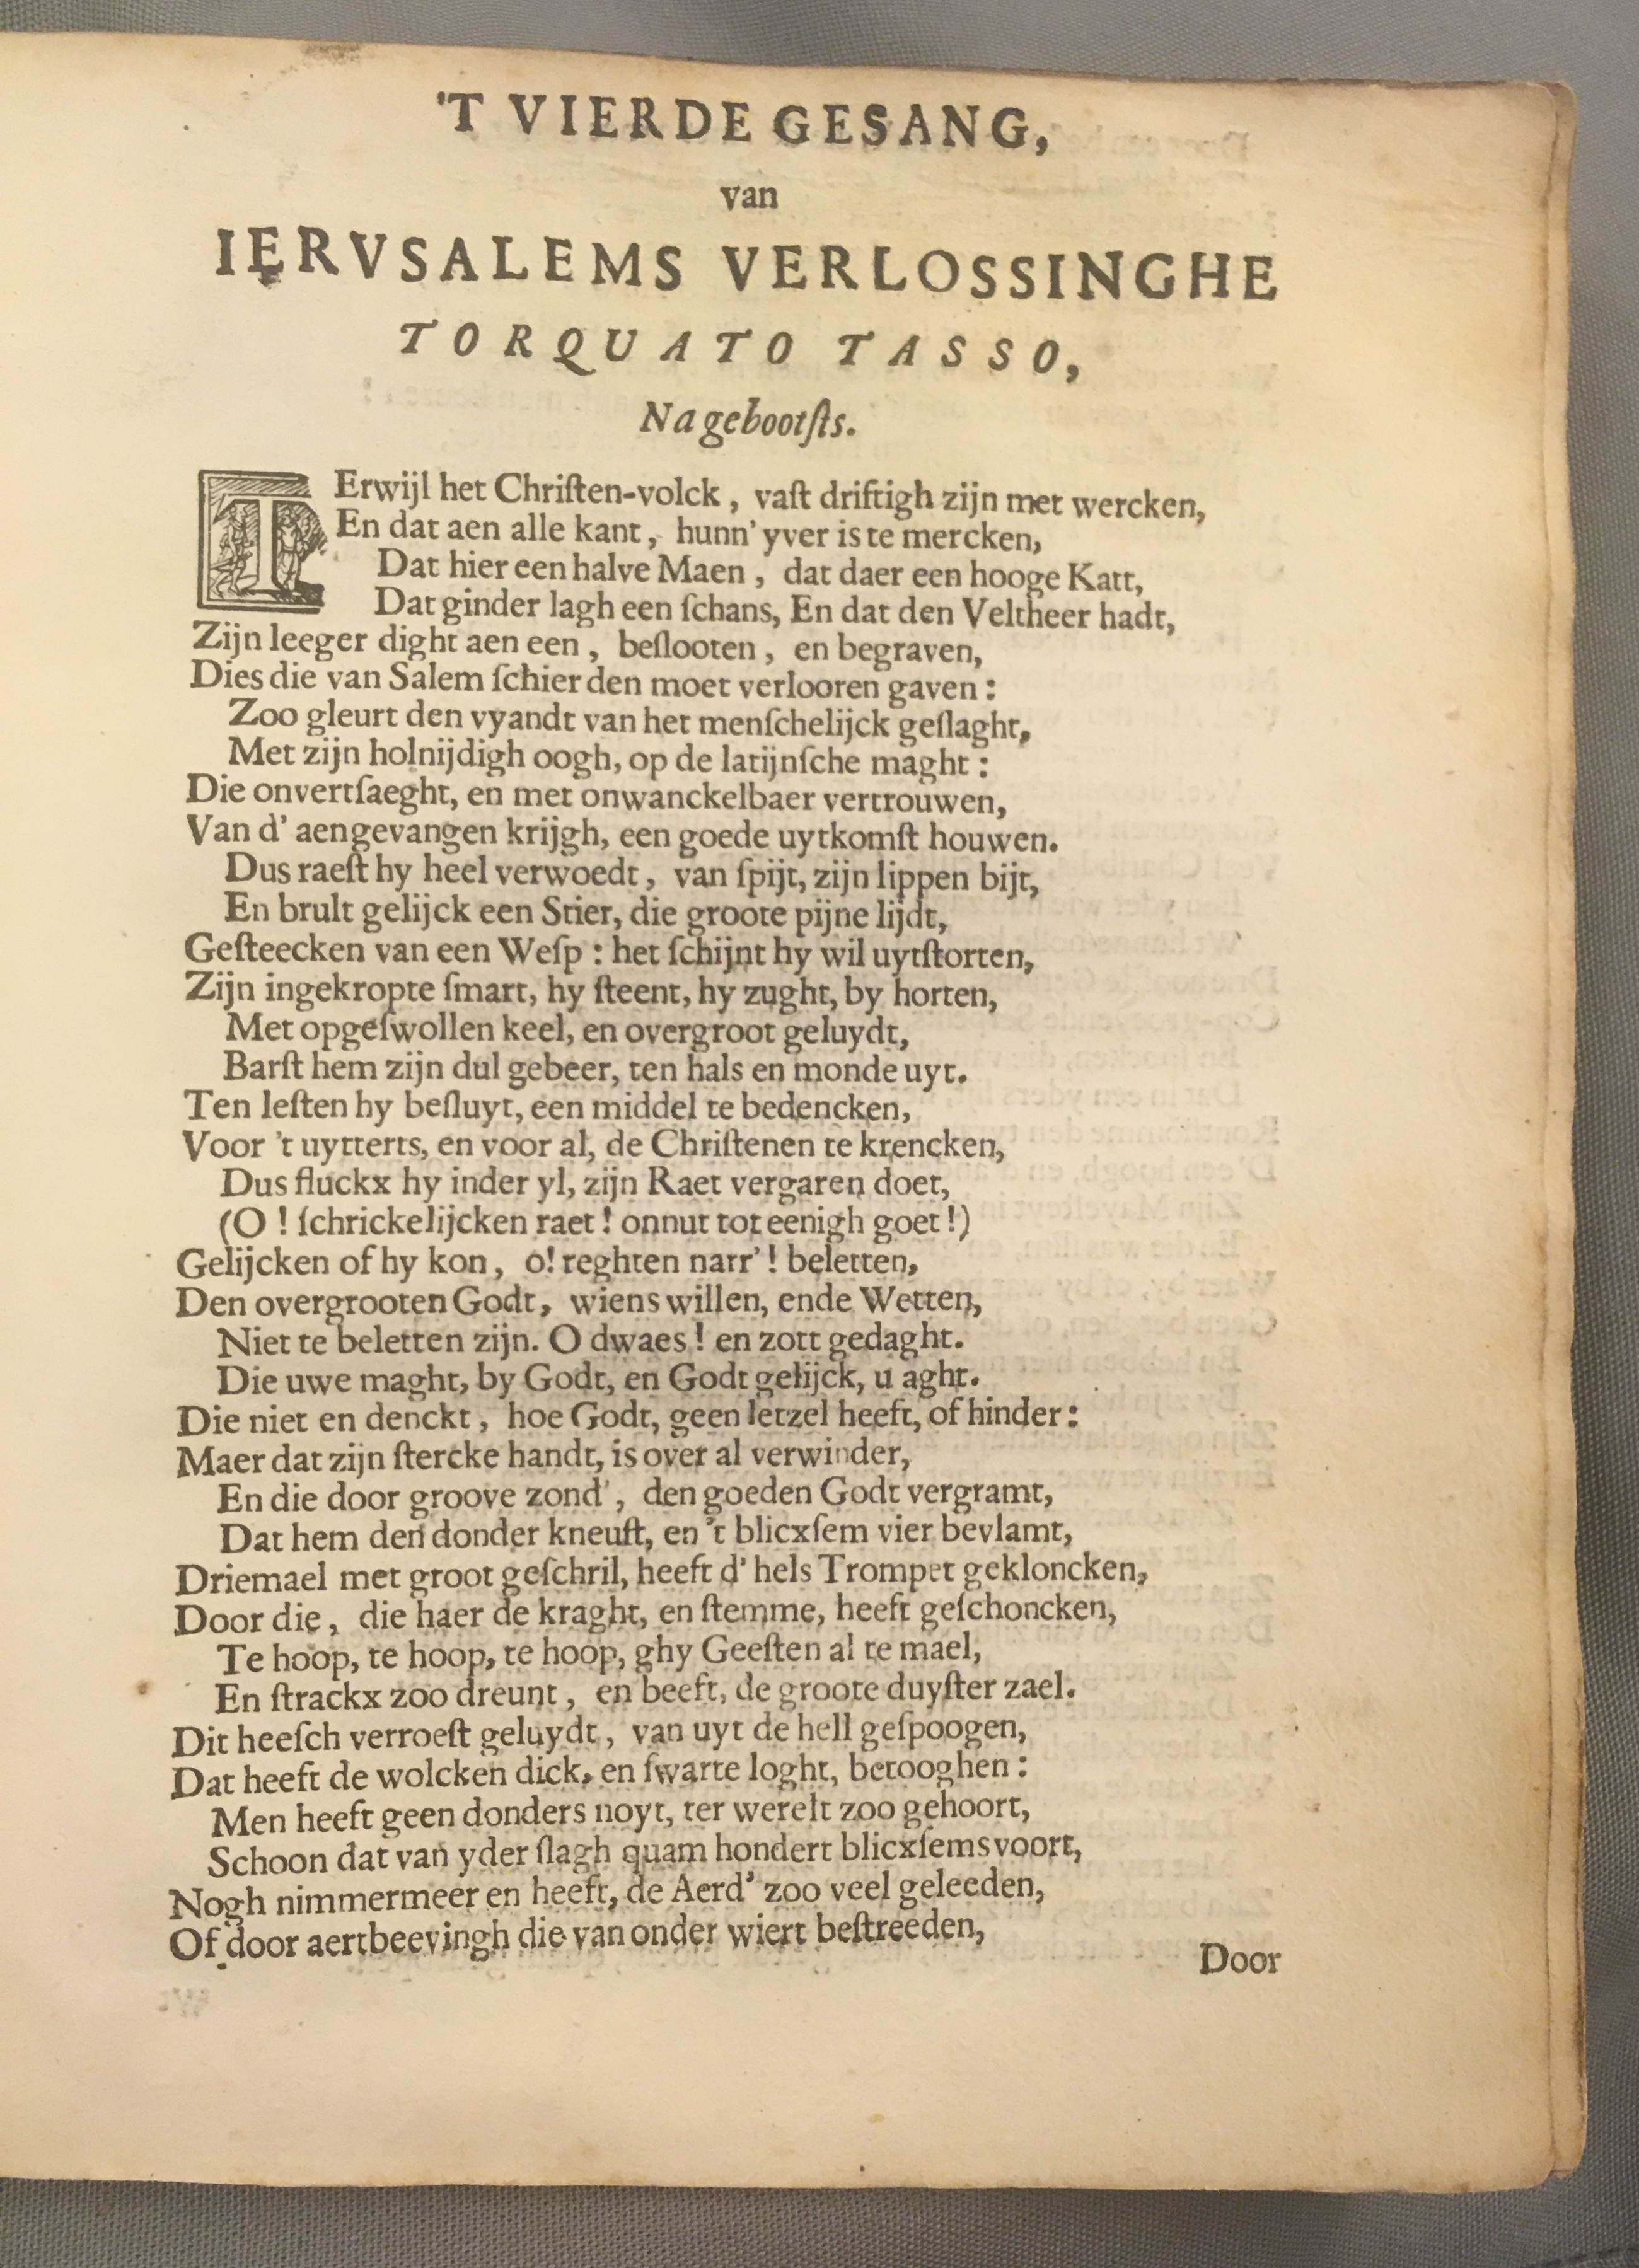 'T VIERDE GESANG,
van
IERVSALEMS VERLOSSINGHE
TORQUATO TASSO,
Nagebootſts.
TErwijl het Chriſten-volck, vaſt driftigh zijn met wercken,
En dat aen alle kant, hunn' yver is te mercken,
Dat hier een halve Maen, dat daer een hooge Katt,
Dat ginder lagh een ſchans, En dat den Veltheer hadt,
Zijn leeger dight aen een, beſlooten, en begraven,
Dies die van Salem ſchier den moet verlooren gaven:
Zoo gleurt den vyandt van het menſchelijck geſlaght,
Met zijn holnijdigh oogh, op de latijnſche maght:
Die onvertſaeght, en met onwanckelbaer vertrouwen,
Van d' aengevangen krijgh, een goede uytkomſt houwen.
Dus raeſt hy heel verwoedt, van ſpijt, zijn lippen bijt,
En brult gelijck een Stier, die groote pijne lijdt,
Geſteecken van een Weſp: het ſchijnt hy wil uytſtorten,
Zijn ingekropte ſmart, hy ſteent, hy zught, by horten,
Met opgeſwollen keel, en overgroot geluydt,
Barſt hem zijn dul gebeer, ten hals en monde uyt.
Ten leſten hy beſluyt, een middel te bedencken,
Voor 't uytterts, en voor al, de Chriſtenen te krencken,
Dus fluckx hy inder yl, zijn Raet vergaren doet,
(O! ſchrickelijcken raet! onnut tot eenigh goet!)
Gelijcken of hy kon, o! reghten narr'! beletten,
Den overgrooten Godt, wiens willen, ende Wetten,
Niet te beletten zijn. O dwaes! en zott gedaght.
Die uwe maght, by Godt, en Godt gelijck, u aght.
Die niet en denckt, hoe Godt, geen letzel heeft, of hinder:
Maer dat zijn ſtercke handt, is over al verwinder,
En die door groove zond', den goeden Godt vergramt,
Dat hem den donder kneuſt, en 't blicxſem vier bevlamt,
Driemael met groot geſchril, heeft d' hels Trompet gekloncken,
Door die, die haer de kraght, en ſtemme, heeft geſchoncken,
Te hoop, te hoop, te hoop, ghy Geeſten al te mael,
En ſtrackx zoo dreunt, en beeft, de groote duyſter zael.
Dit heeſch verroeſt geluydt, van uyt de hell geſpoogen,
Dat heeft de wolcken dick, en ſwarte loght, betooghen:
Men heeft geen donders noyt, ter werelt zoo gehoort,
Schoon dat van yder ſlagh quam hondert blicxſems voort,
Nogh nimmermeer en heeft, de Aerd' zoo veel geleeden,
Of door aertbeevingh die van onder wiert beſtreeden,
Door